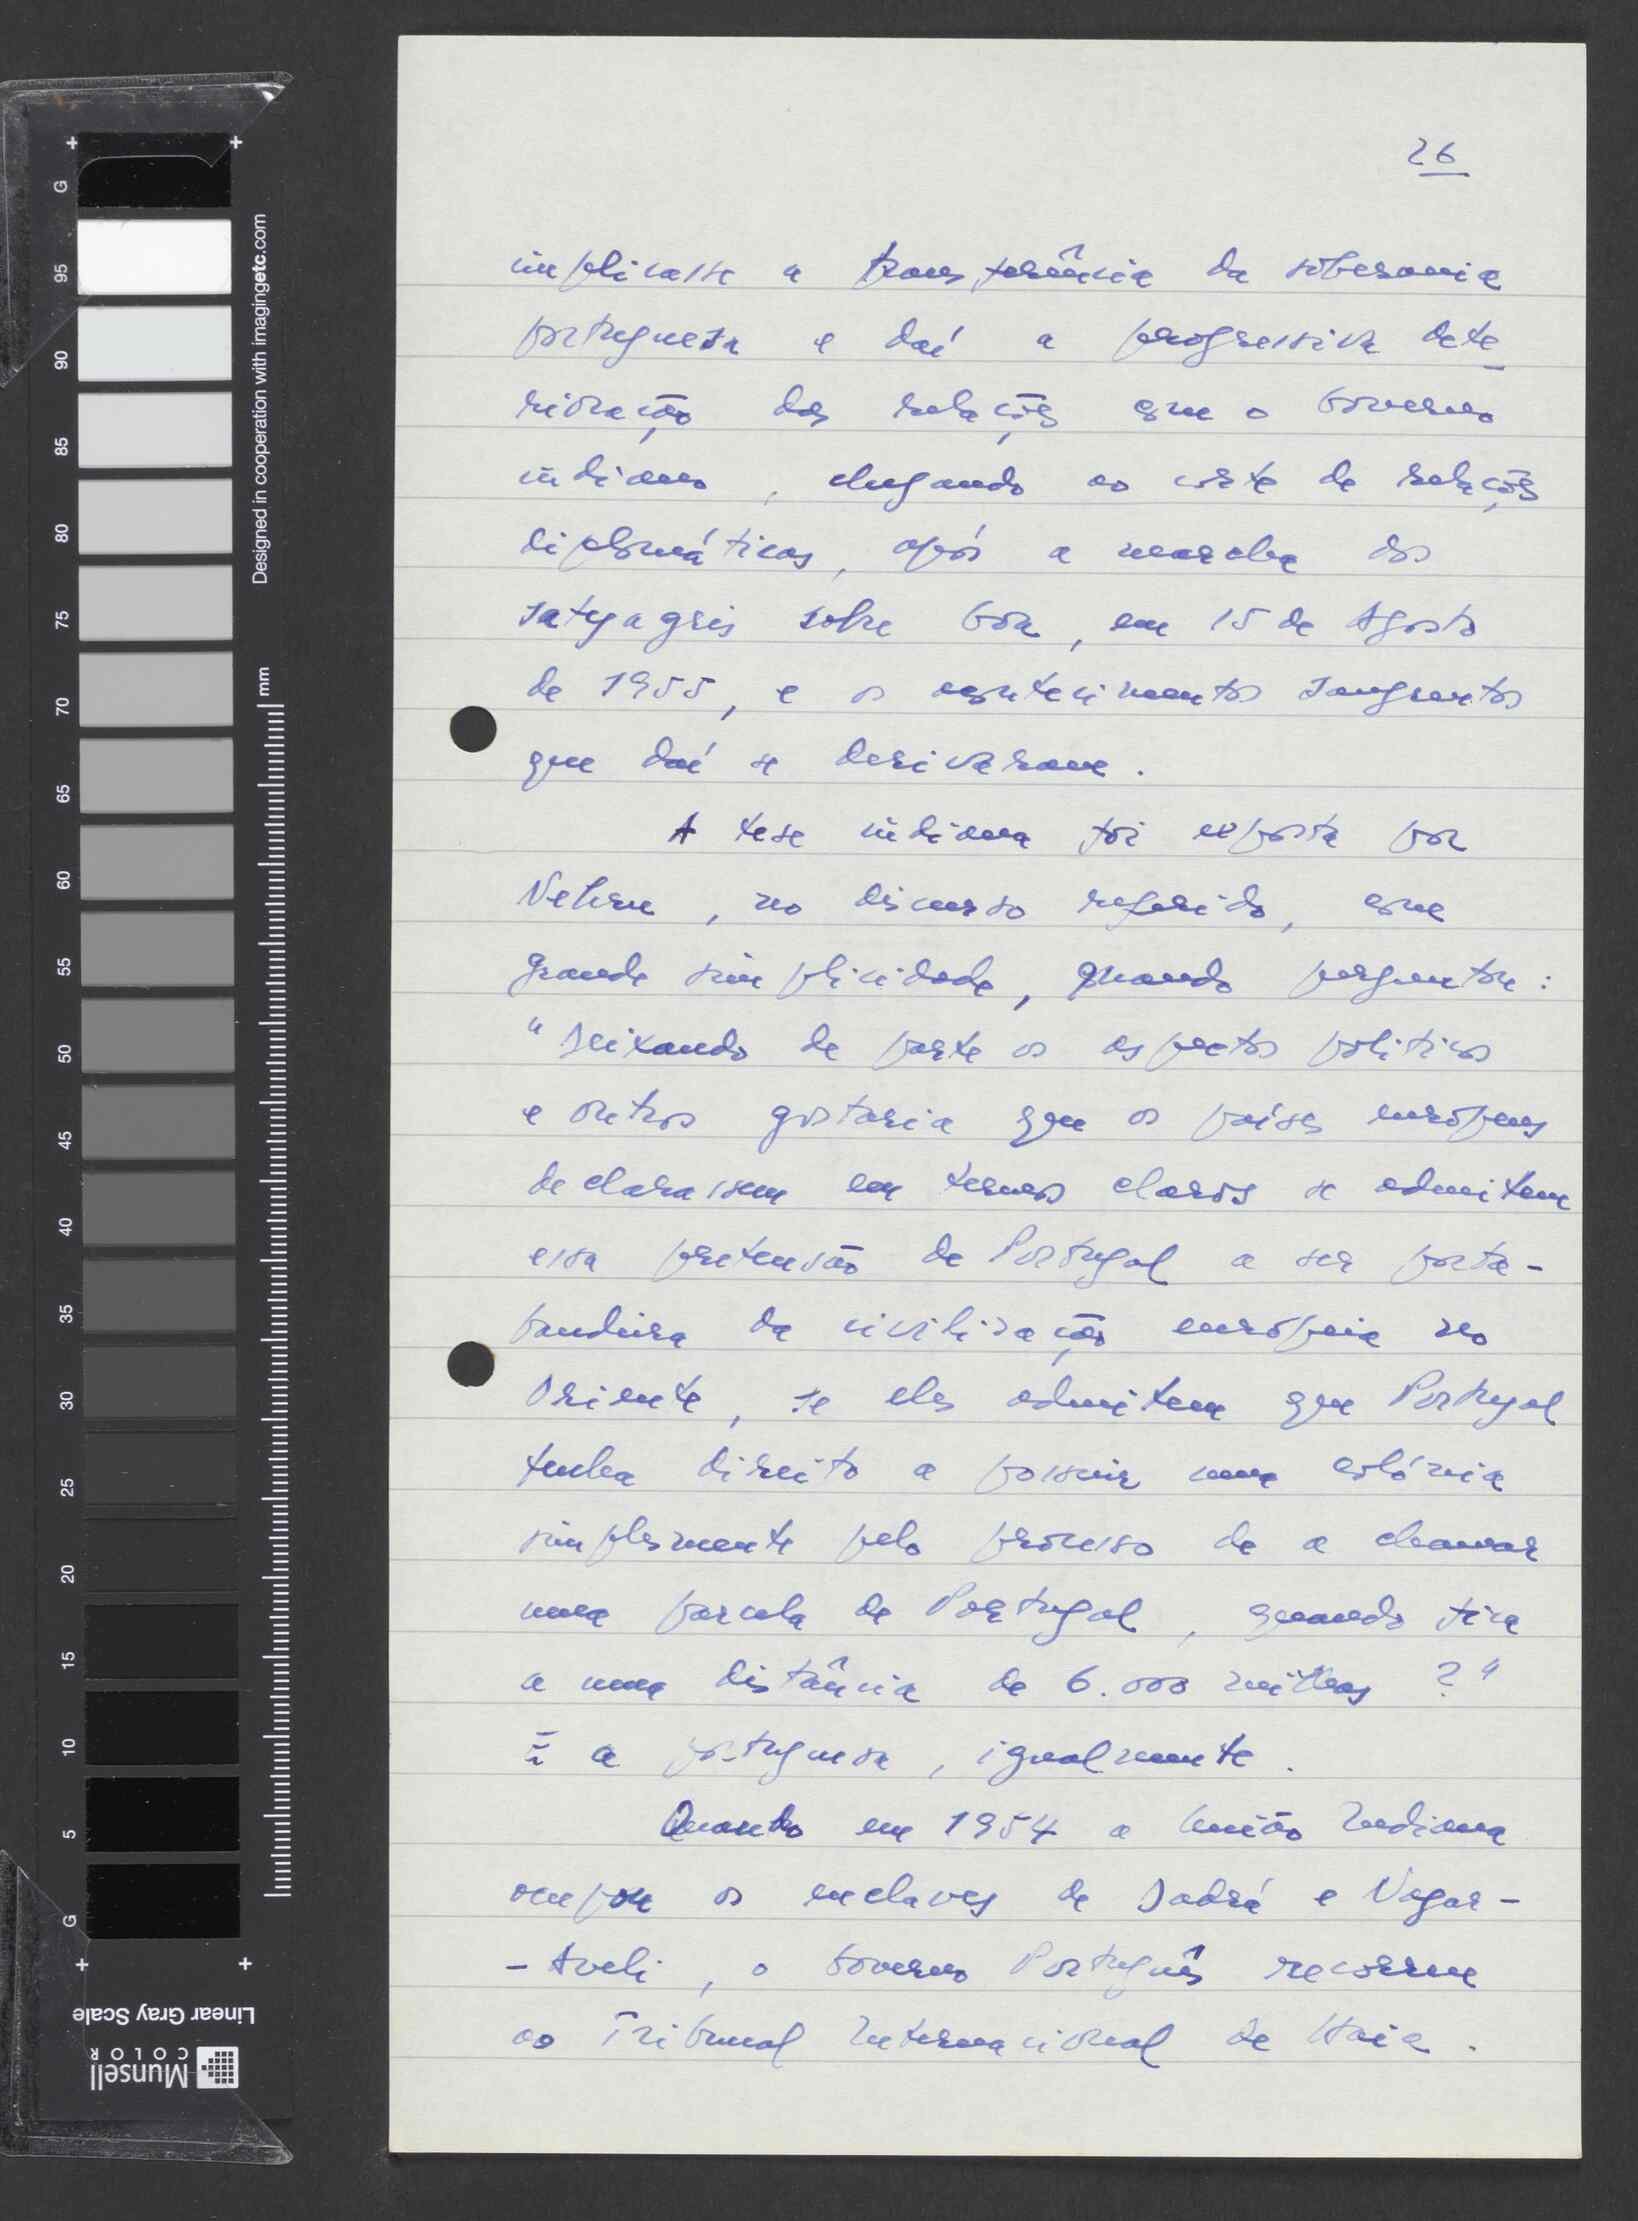 26
implicasse a transferência da soberania
portuguesa e daí a progressiva dete-
rioração das relações com o Governo
indiano, chegando ao corte de relações
diplomáticas, após a marcha dos
satyagris sobre Goa, em 15 de Agosto
de 1955, e os acontecimentos sangrentos
que daí se derivaram.
A tese indiana foi exposta por
Nehru, no discurso referido, com
grande simplicidade, quando perguntou:
"Deixando de parte os aspectos politicos
e outros gostaria que os países europeus
declarassem em termos claros se admitem
essa pretensão de Portugal a ser porta-
bandeira da civilização europeia no
Oriente, se eles admitem que Portugal
tenha direito a possuir uma colónia
simplesmente pelo processo de a chamar
uma parcela de Portugal, quando fica
a uma distância de 6.000 milhas ?"
E a portuguesa, igualmente.
Quando em 1954 a União Indiana
ocupou os enclaves de Dadrá e Nagar-
-Aveli, o Governo Português recorreu
ao Tribunal Internacional de Haia.
Designed in cooperation with imagingetc.com
mm
G
95
90
85
80
75
70
65
60
55
50
45
40
35
30
25
20
15
10
5
G
Linear Gray Scale
Munsell
COLOR